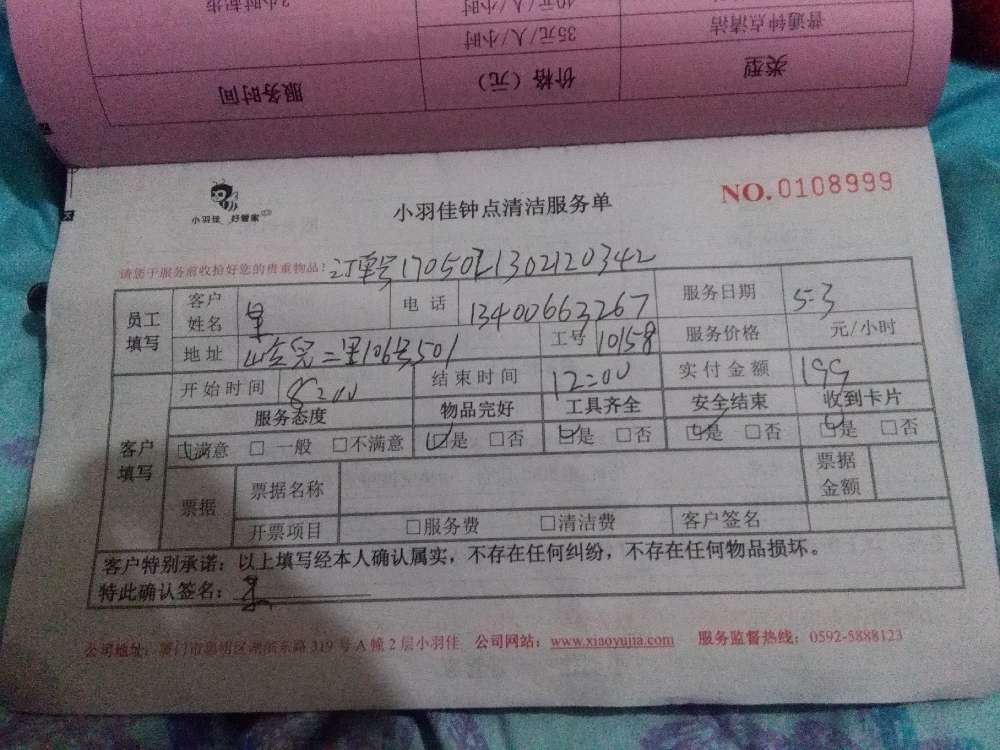 服务时间 价格（元） 类型
2小时起步 35元/人/小时 普通钟点清洁
40元/人/小时
小羽佳 好管家
小羽佳钟点清洁服务单
NO.0108999
请您于服务前收拾好您的贵重物品！
员工填写 客户姓名 电话 13400663267 服务日期 5.3
地址 二里106号501 工号 10158 服务价格 元/小时
客户填写 开始时间 8:00 结束时间 12:00 实付金额 199
服务态度 物品完好 工具齐全 安全结束 收到卡片
满意 □ 一般 □不满意 是 □否 是 □否 是 □否 是 □否
票据 票据名称 票据金额
开票项目 □服务费 □清洁费 客户签名
客户特别承诺：以上填写经本人确认属实，不存在任何纠纷，不存在任何物品损坏。
特此确认签名：
公司地址：厦门市思明区湖滨东路319号A幢2层小羽佳 公司网站：www.xiaoyujia.com 服务监督热线：0592-5888123